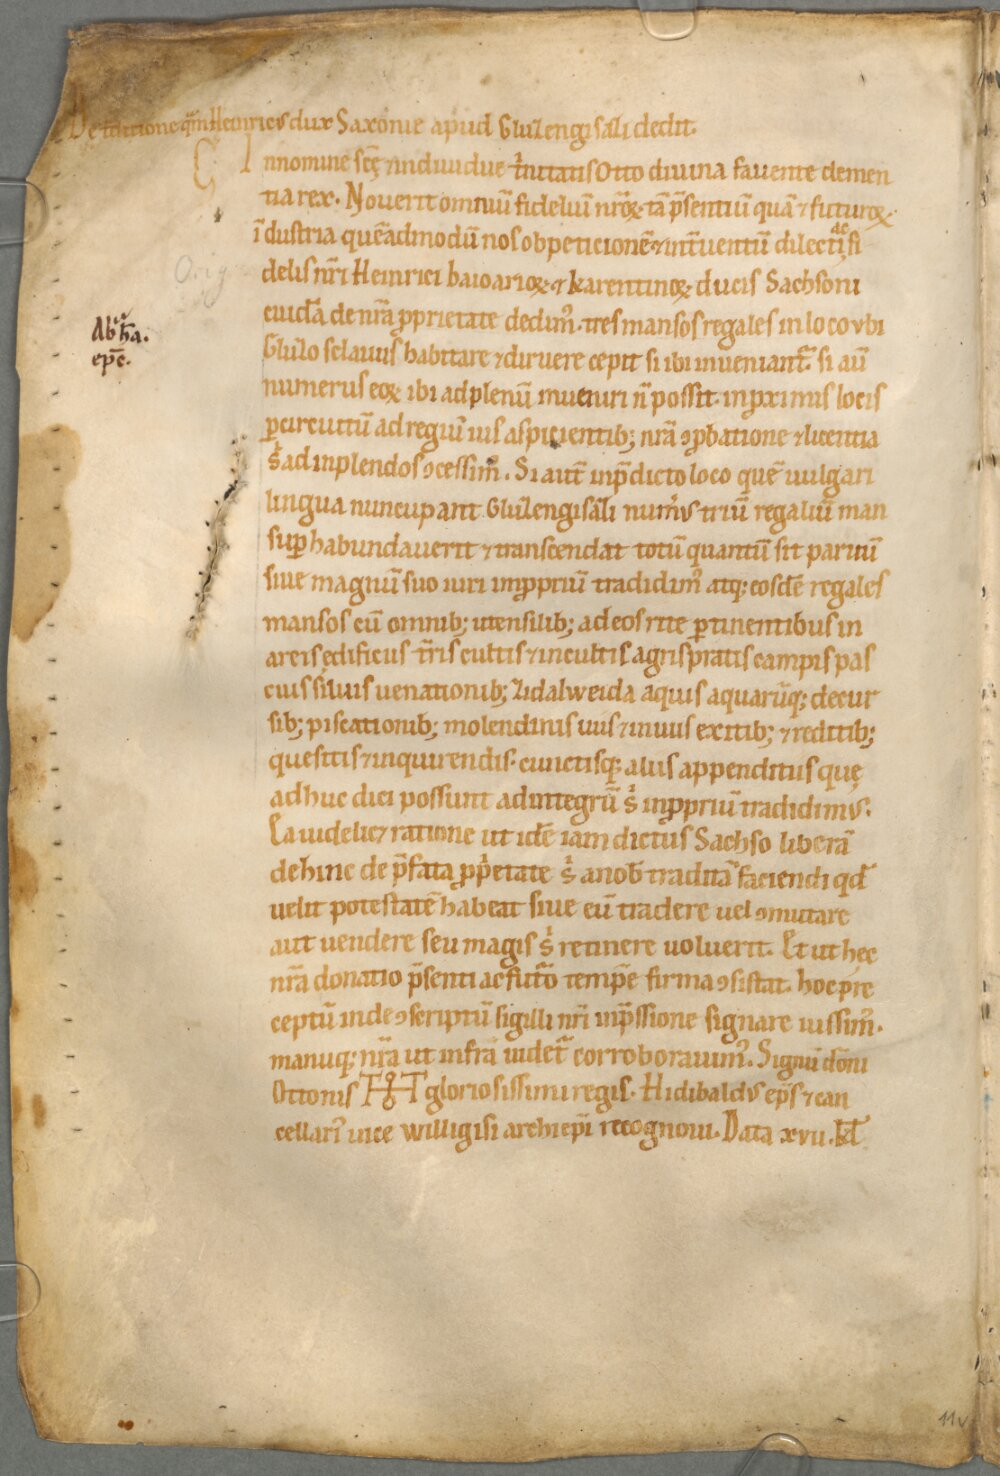 De traditione quā Heinricus dux Saxonie apud Gluzengisazi dedit.
C In nomine scę & individue trinitatis Otto divina favente clemen
tia rex. Noverit omniū fideliū nr̄oꝝ tā p̄sentiū quā & futuroꝝ
Orig
īdustria quēadmodū nos ob peticionē & int̄ventū dilecti ac fi
delis nr̄i Heinrici baioarioꝝ & karentinoꝝ ducis Sachsoni
Abrahā.
cuidā de nr̄a ꝓprietate dedim᷒ tres mansos regales in loco ubi
epc̄.
Gluzo sclavus habitare & diruere cepit si ibi inveniant᷑. si aū
numerus eoꝝ ibi ad plenū inveniri n̄ possit. in ꝓximis locis
ꝑ circuitū ad regiū ius aspicientib; nr̄a ꝯprobatione & licentia
s̄ adinplendos ꝯcessim᷒. Si autē in p̄dicto loco quē vulgari
lingua nuncupant Gluzengisazi num̄us triū regaliū man
sup̱ habundaverit & transcendat totū quantū sit parvū
sive magnū suo iuri in ꝓpriū tradidim᷒ atq; eosdē regales
mansos cū omnib; utensilib; ad eos rite ꝑtinentibus in
areis ędificiis t̄ris cultis & incultis agris pratis campis pas
cuis silvis venationib; zidalweida aquis aquarūq; decur
sib; piscationib; molendinis viis & inviis exitib; & reditib;
quesitis & inquirendis. cunctisq; aliis appenditiis quę
adhuc dici possunt ad integrū s̄ in ꝓpriū tradidimus.
Ea videlic& ratione ut idē iam dictus Sachso liberā
dehinc de p̄fata ꝓprietate s̄ a nob̄ traditā faciendi qd̄
velit potestatē habeat sive eū tradere vel ꝯmutare
aut vendere seu magis s̄ retinere voluerit. Et ut hęc
nr̄a donatio p̄senti ac futuro temp̄e firma ꝯsistat. hoc pre
ceptū inde ꝯscriptū sigilli nr̄i inp̄ssione signare iussim᷒.
manuq; nr̄a ut infra videt᷑ corroboravim᷒. Signū dōni
Ottonis gloriosissimi regis. Hildibaldus ep̄s & can
cellari᷒ vice willigisi archiep̄i recognovi. Data xvii. kl̄
11v